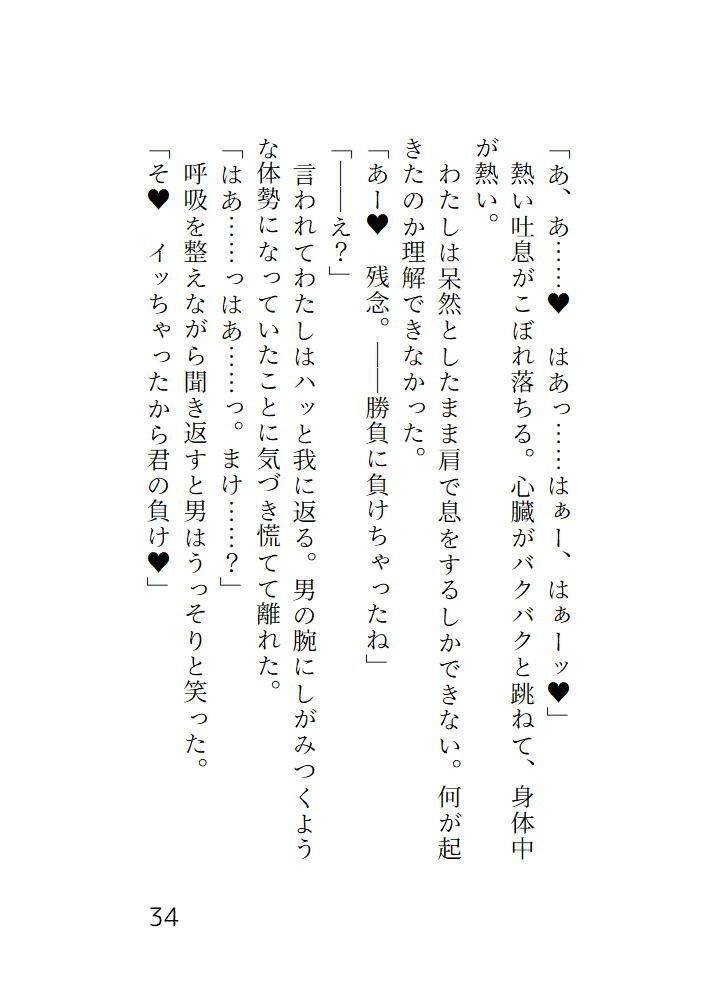 「あ、あ……♥　はあっ……はぁー、はぁーッ♥」
　熱い吐息がこぼれ落ちる。心臓がバクバクと跳ねて、身体中
が熱い。
　わたしは呆然としたまま肩で息をするしかできない。何が起
きたのか理解できなかった。
「あー♥　残念。――勝負に負けちゃったね」
「――え？」
　言われてわたしはハッと我に返る。男の腕にしがみつくよう
な体勢になっていたことに気づき慌てて離れた。
「はあ……っはあ……っ。まけ……？」
　呼吸を整えながら聞き返すと男はうっそりと笑った。
「そ♥　イッちゃったから君の負け♥」
34